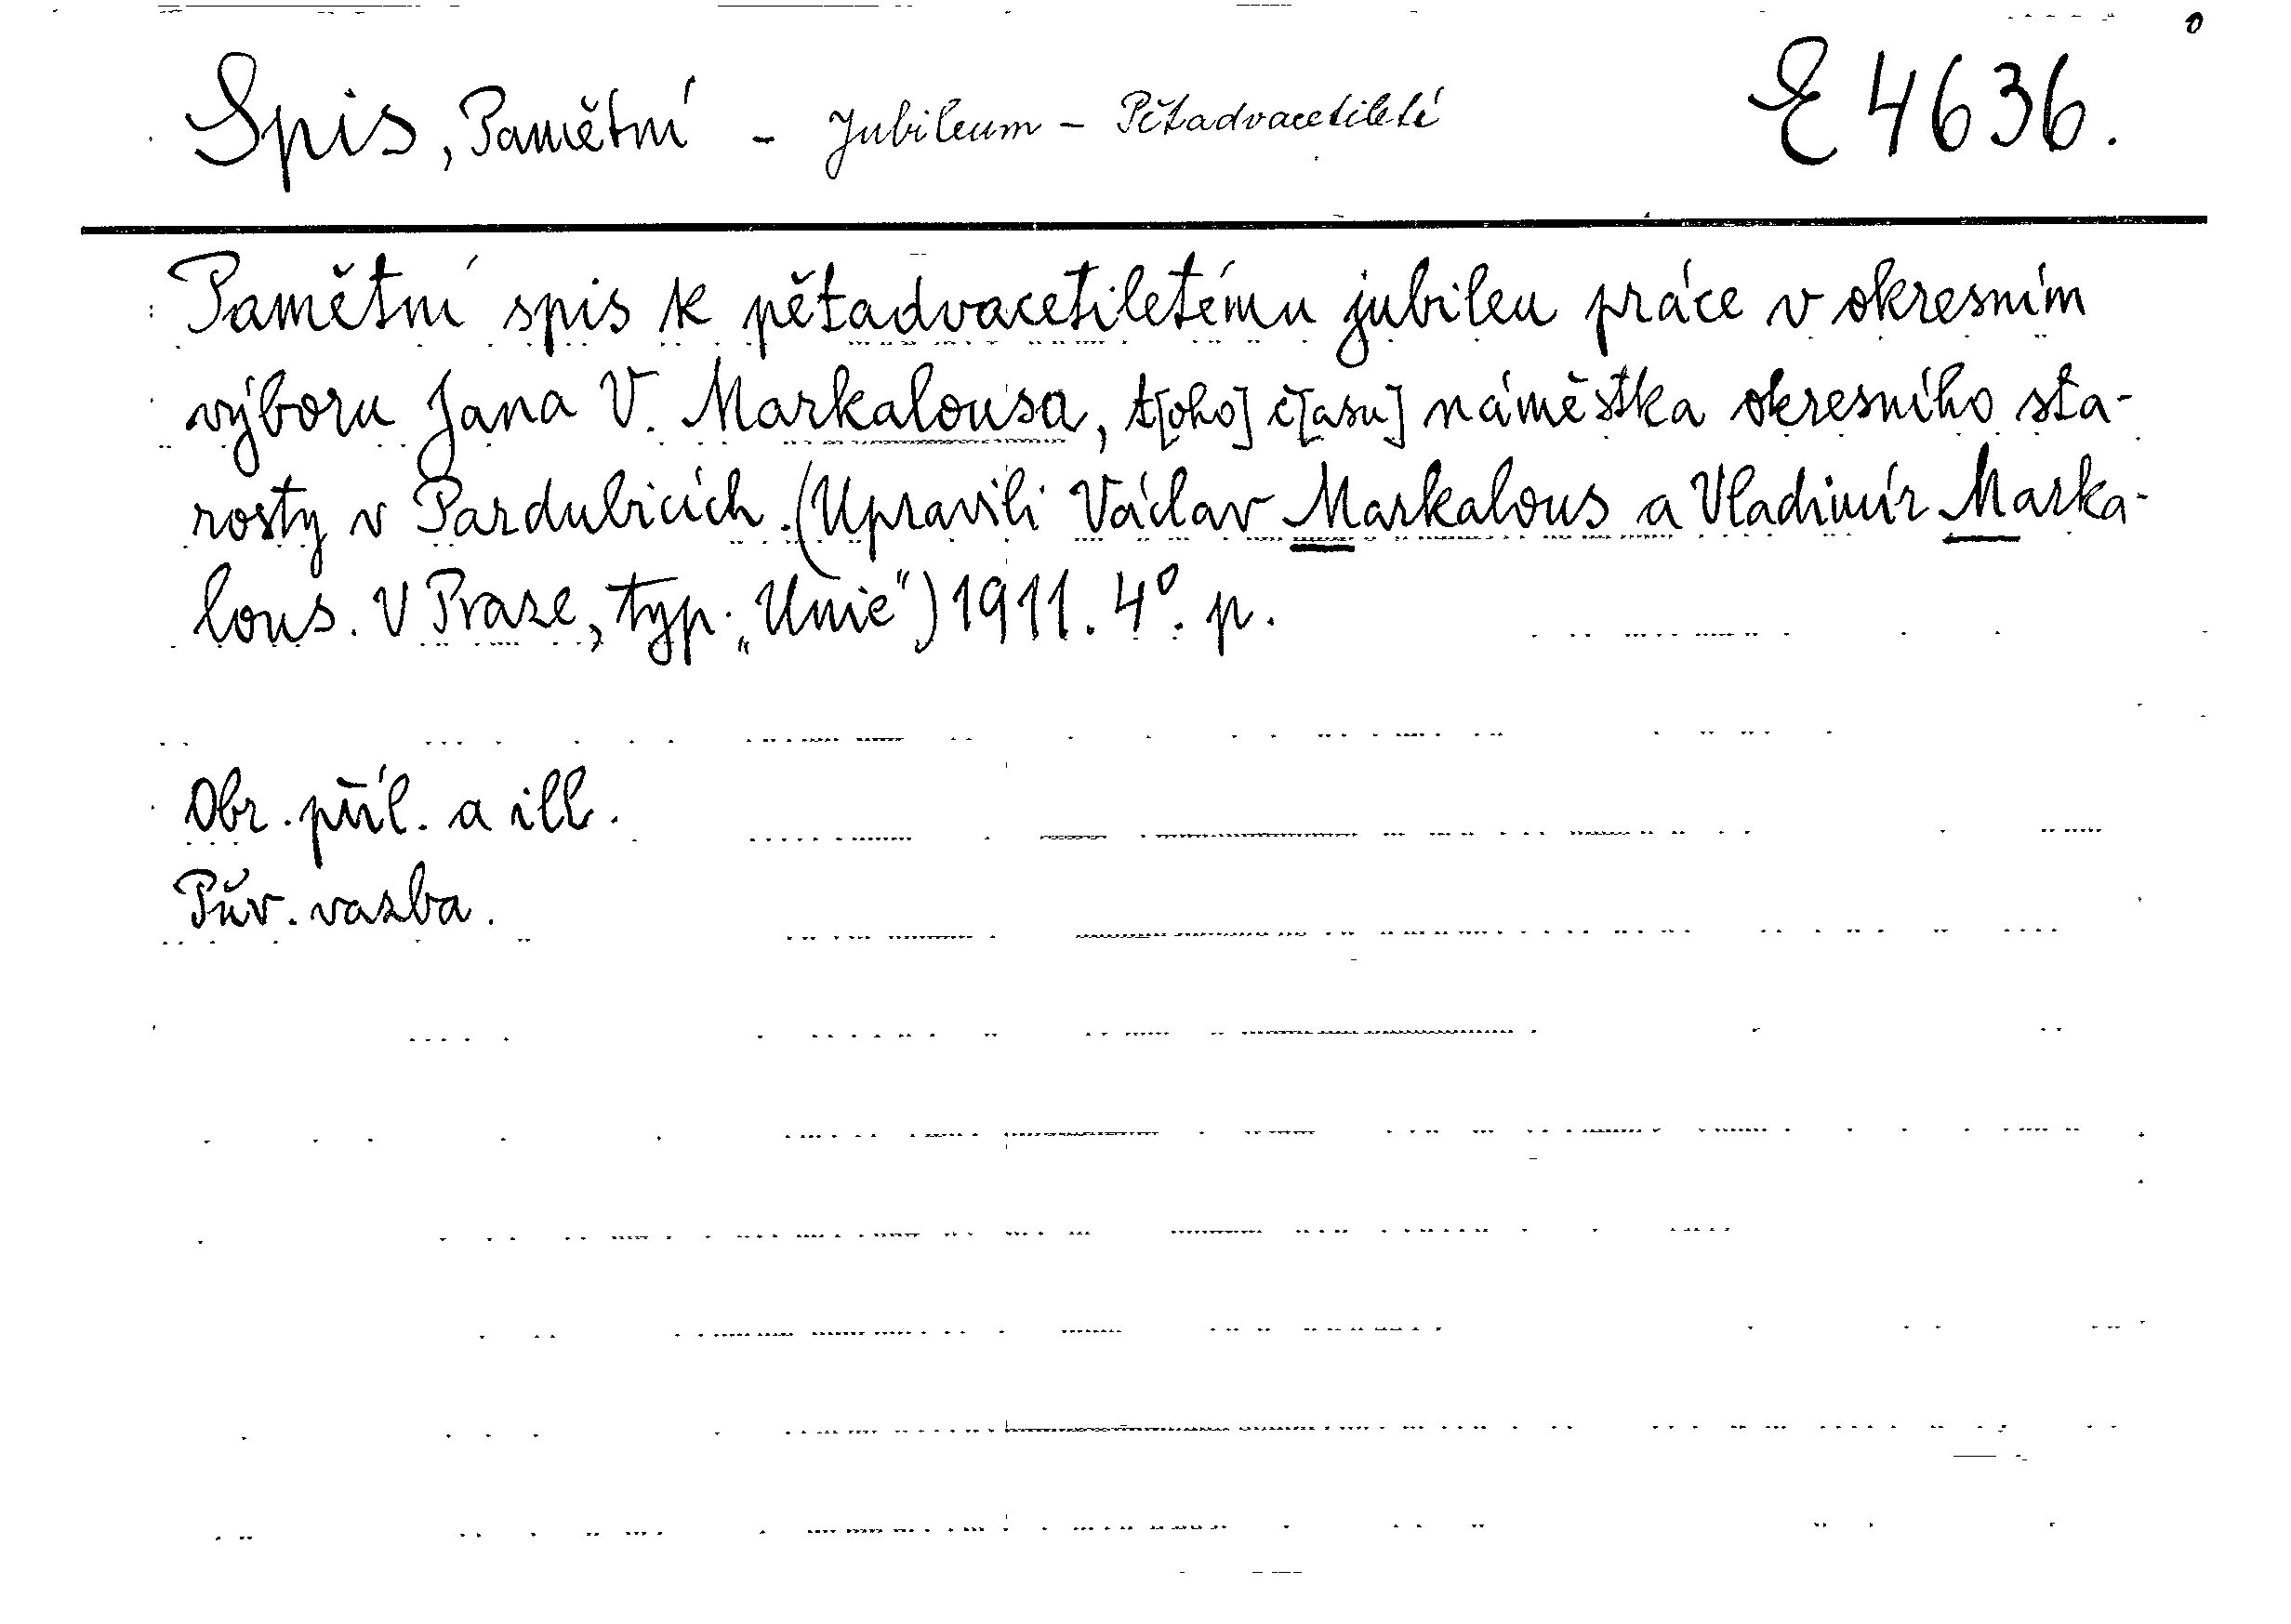 Spis, Pamětní - Jubileum - Pětadvacetileté E 4636.
Pamětní spis k pětadvacetiletému jubileu práce v okresním
výboru Jana V. Markalousa, t[oho] č[asu] náměstka okresního sta-
rosty v Pardubicích. (Upravili Václav Markalous a Vladimír Marka-
lous. V Praze, typ. „Unie") 1911. 4°. p.
Obr. příl. a ill.
Pův. vazba.